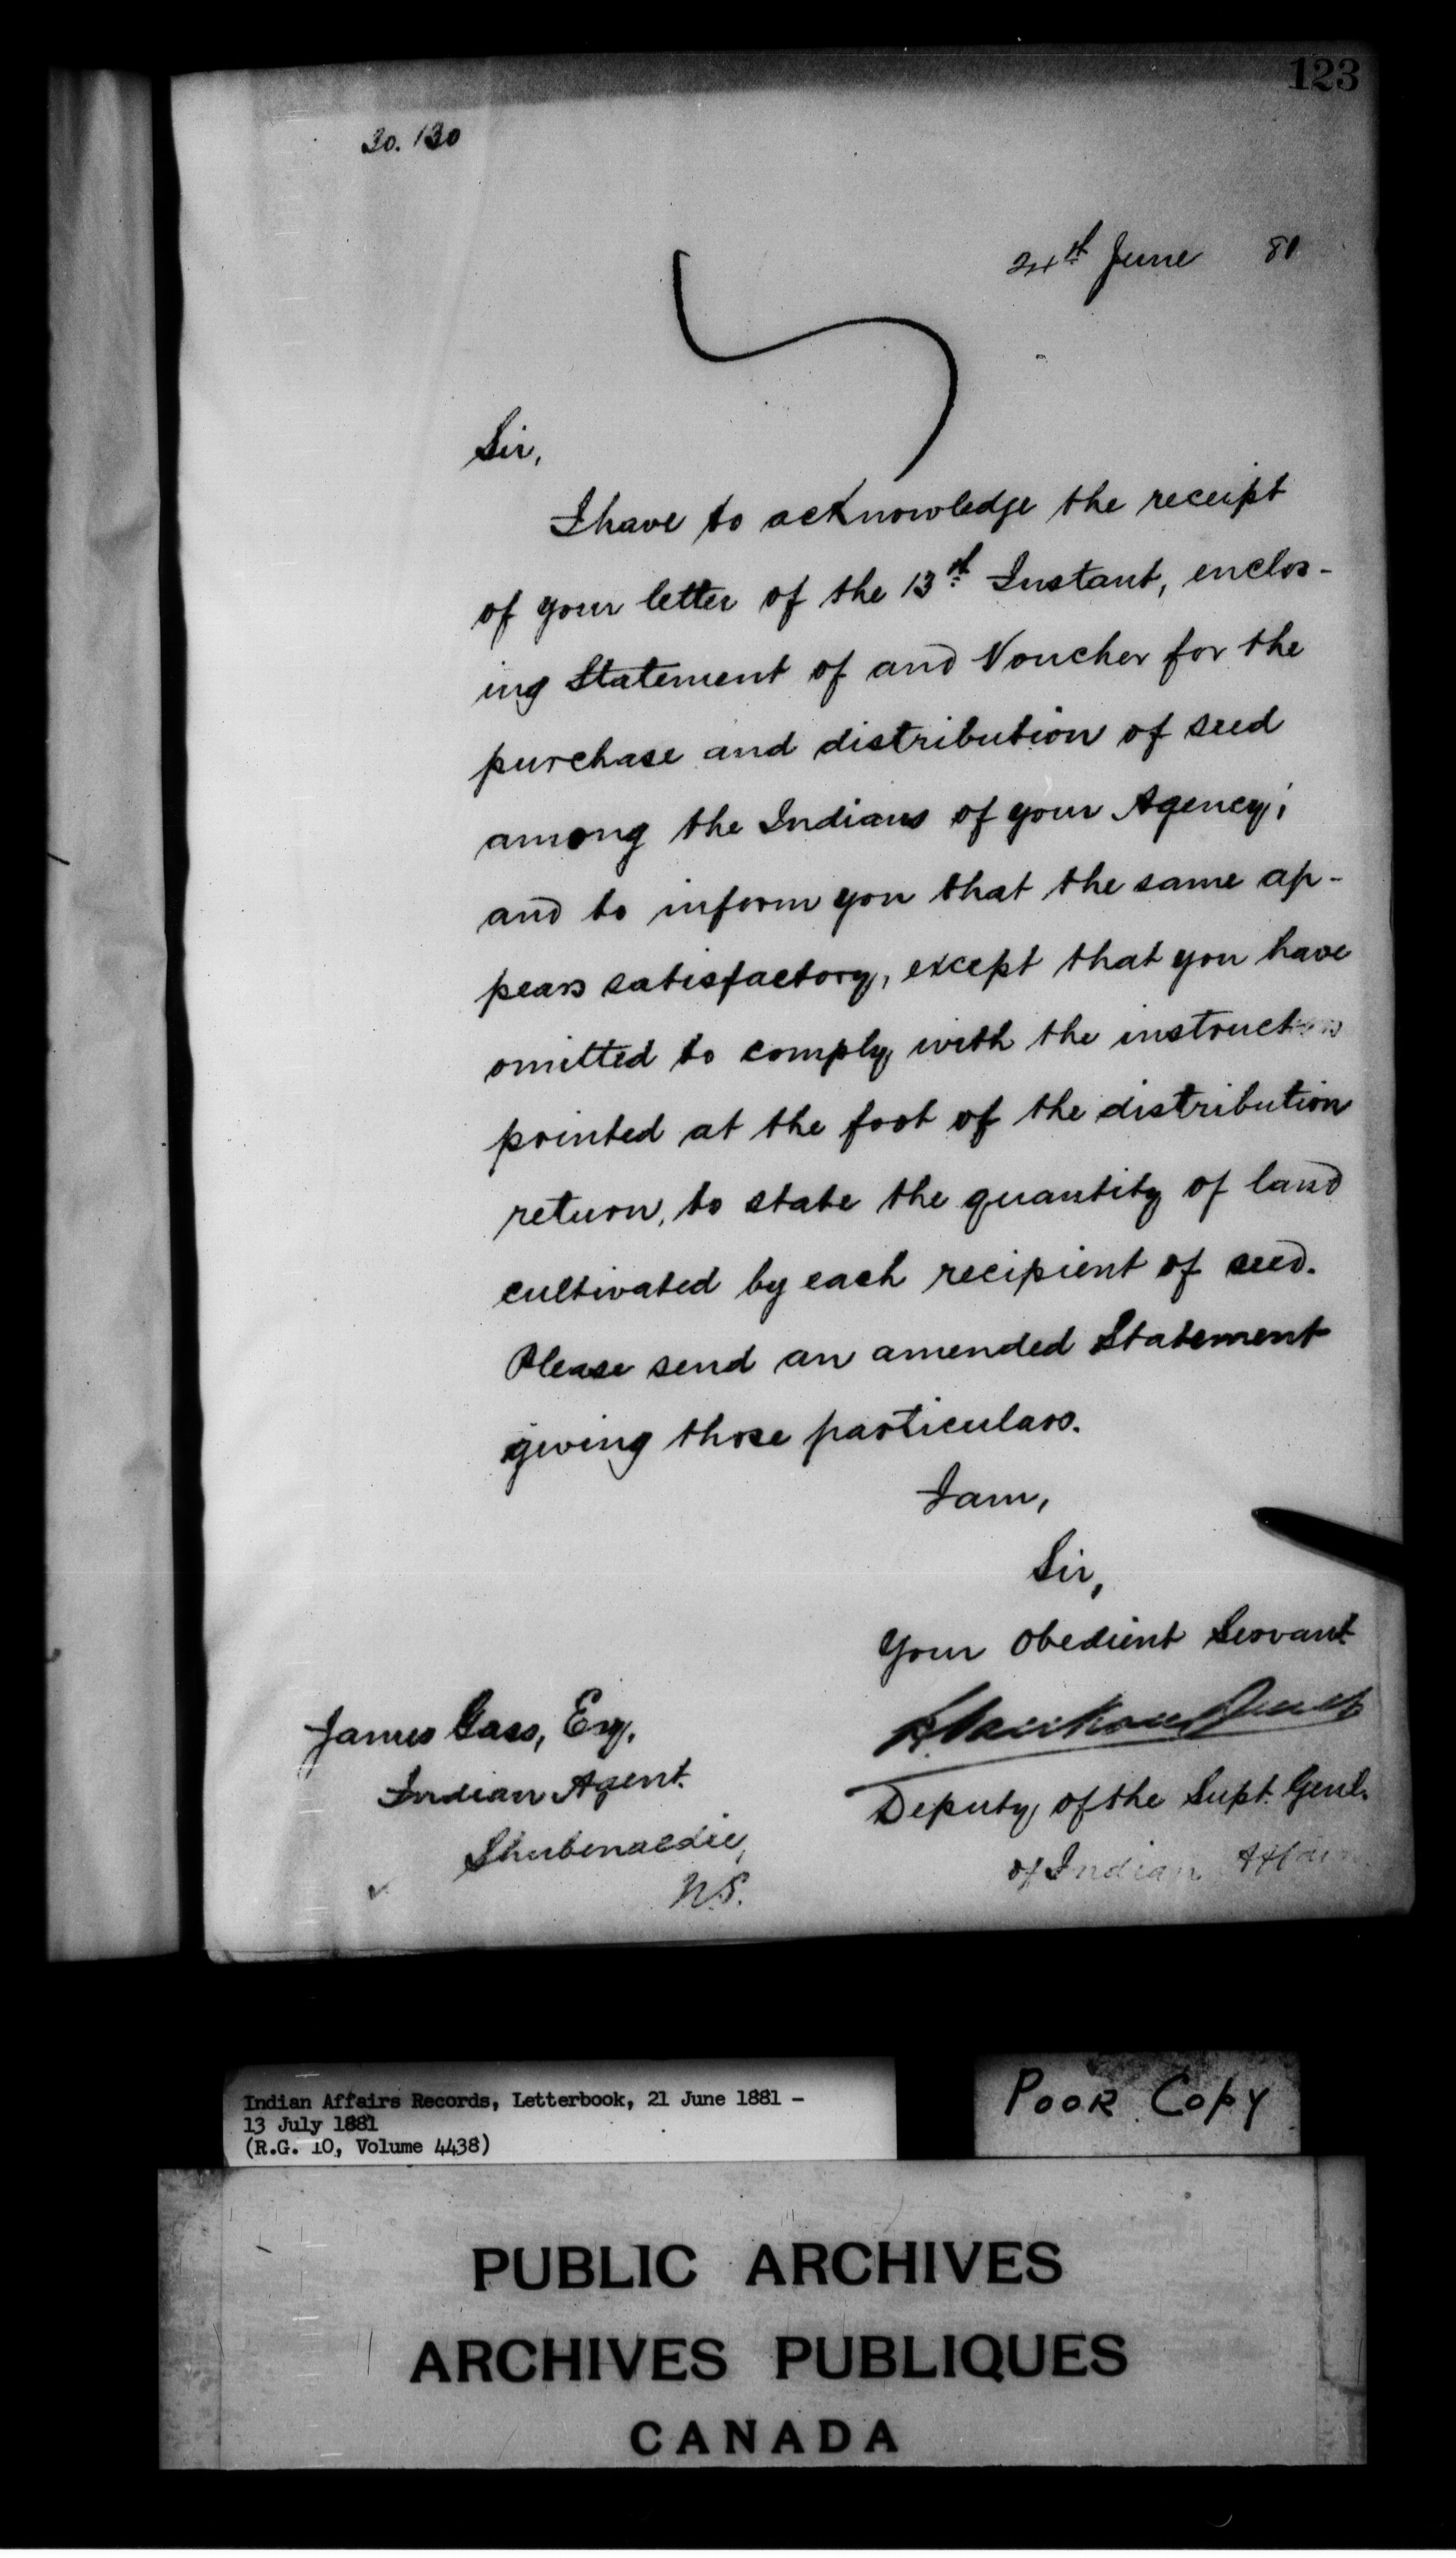 123
30.130
24th June 81
Sir,
I have to acknowledge the receipt
of your letter of the 13th Instant, enclos-
ing Statement of and Voucher for the
purchase and distribution of seed
among the Indians of your Agency;
and to inform you that the same ap-
pears satisfactory, except that you have
omitted to comply with the instructions
printed at the foot of the distribution
return, to state the quantity of land
cultivated by each recipient of seed.
Please send an amended Statement
giving those particulars.
I am,
Sir,
Your Obedient Servant
L. Vankoughnet
Deputy of the Supt. Genl.
of Indian Affairs
James Gass, Esq.
Indian Agent.
Shubenacadie,
N.S.
Indian Affairs Records, Letterbook, 21 June 1881 -
13 July 1881
(R.G. 10, Volume 4438)
POOR COPY
PUBLIC ARCHIVES
ARCHIVES PUBLIQUES
CANADA